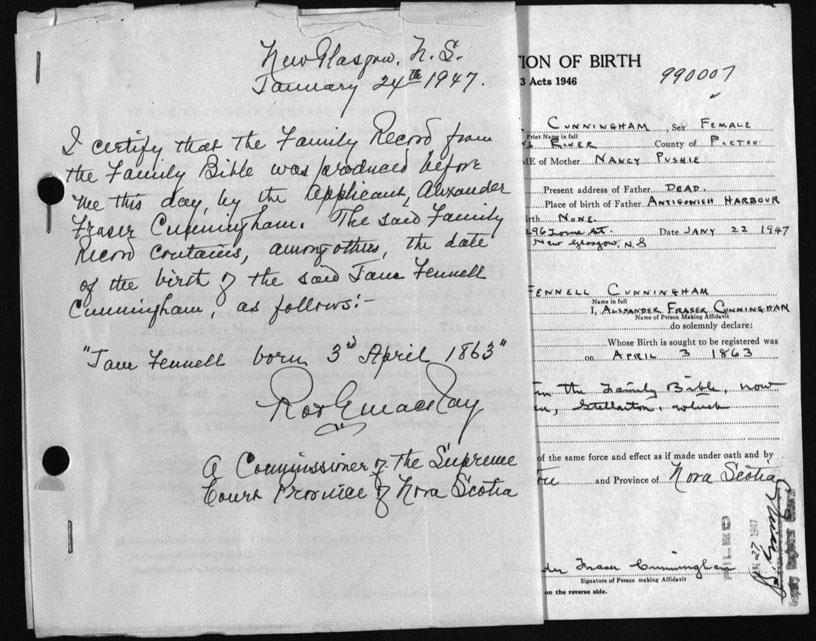 New Glasgow, N.S.
January 24th 1947.
I certify that the Family Record from
the Family Bible was produced before
me this day, by the Applicant, Alexander
Fraser Cunningham. The said Family
Record contains, among others, the date
of the birth of the said Jane Fennell
Cunningham, as follows:-
"Jane Fennell born 3rd April 1863"
A Commissioner of the Supreme
Court Province of Nova Scotia
TION OF BIRTH
3 Acts 1946
990007
CUNNINGHAM, Sex FEMALE
Print Name in full
RIVER County of PICTOU
ME of Mother NANCY PUSHIE
Present address of Father DEAD.
Place of birth of Father ANTIGONISH HARBOUR
irth NONE.
296 Date JANY 22 1947
NEW GLASGOW, N.S
FENNELL CUNNINGHAM
Name in full
I, ALEXANDER FRASER CUNNINGHAM
Name of Person Making Affidavit
do solemnly declare:
Whose Birth is sought to be registered was
on APRIL 3 1863
in the Family Bible, now
Stellarton, which
of the same force and effect as if made under oath and by
and Province of Nova Scotia
27 1947
der Fraser Cunningham
Signature of Person making Affidavit
on the reverse side.